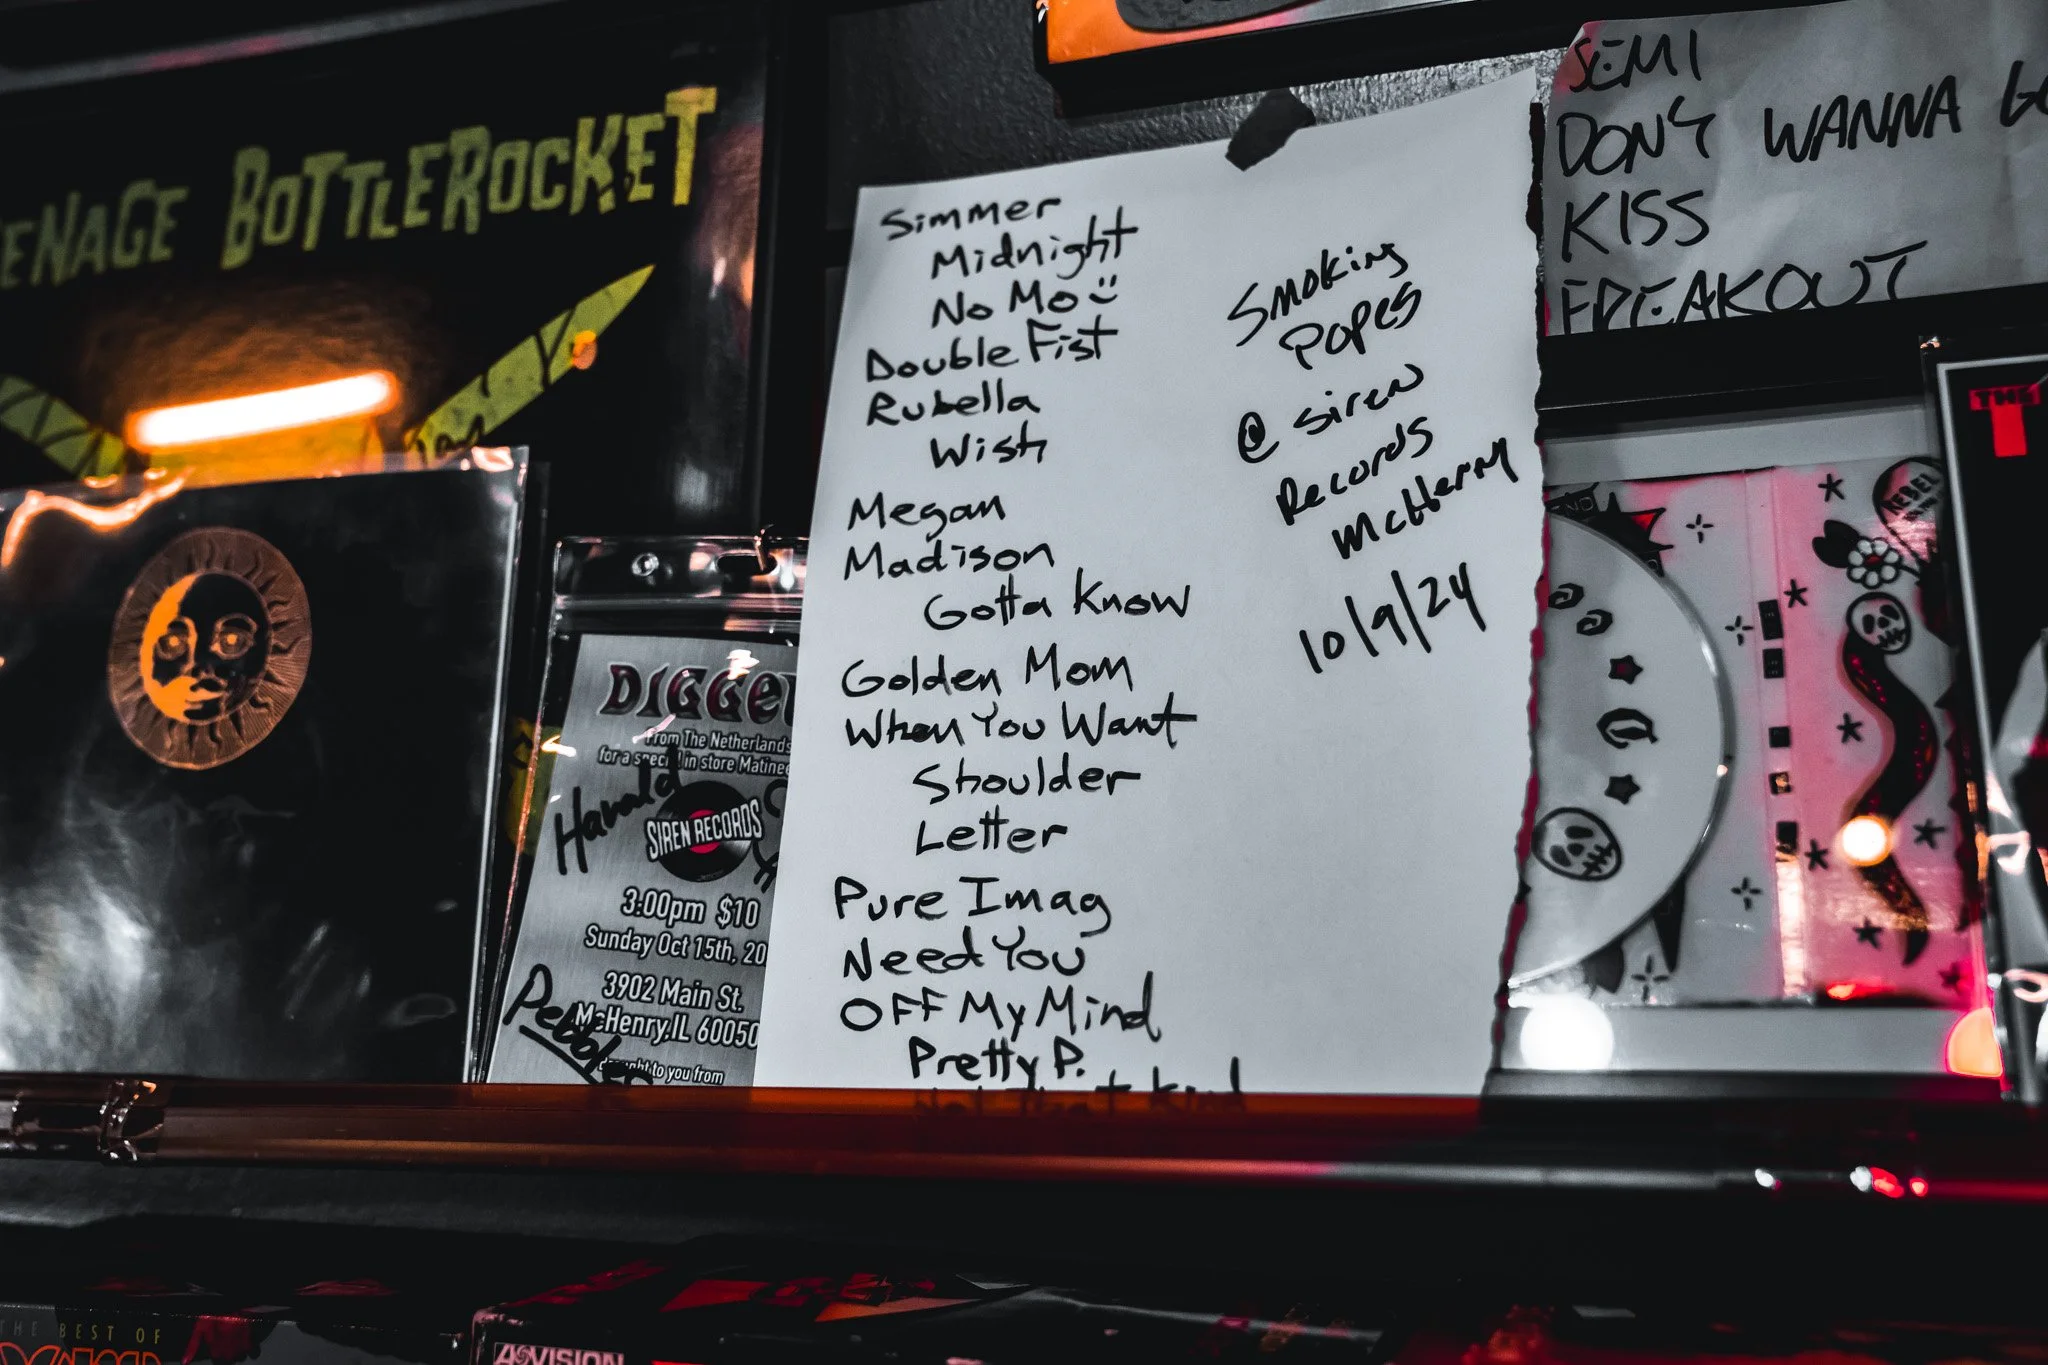 BOTTLEROCKET
Simmer
Midnight
No Mo
Double Fist
Rubella
Wish
Megan
Madison
Gotta Know
Golden Mom
When You Want
Shoulder
Letter
Pure Imag
Need You
OFF My Mind
Pretty P.
Smoking
Popes
@ Siren
Records
McHenry
10/9/24
SEMI
DON'T WANNA
KISS
FREAKOUT
From The Netherlands
for a special in store Matinee
Harald
SIREN RECORDS
3:00pm $10
Sunday Oct 15th, 20
3902 Main St.
McHenry, IL 60050
to you from
REBEL
THE
THE BEST OF